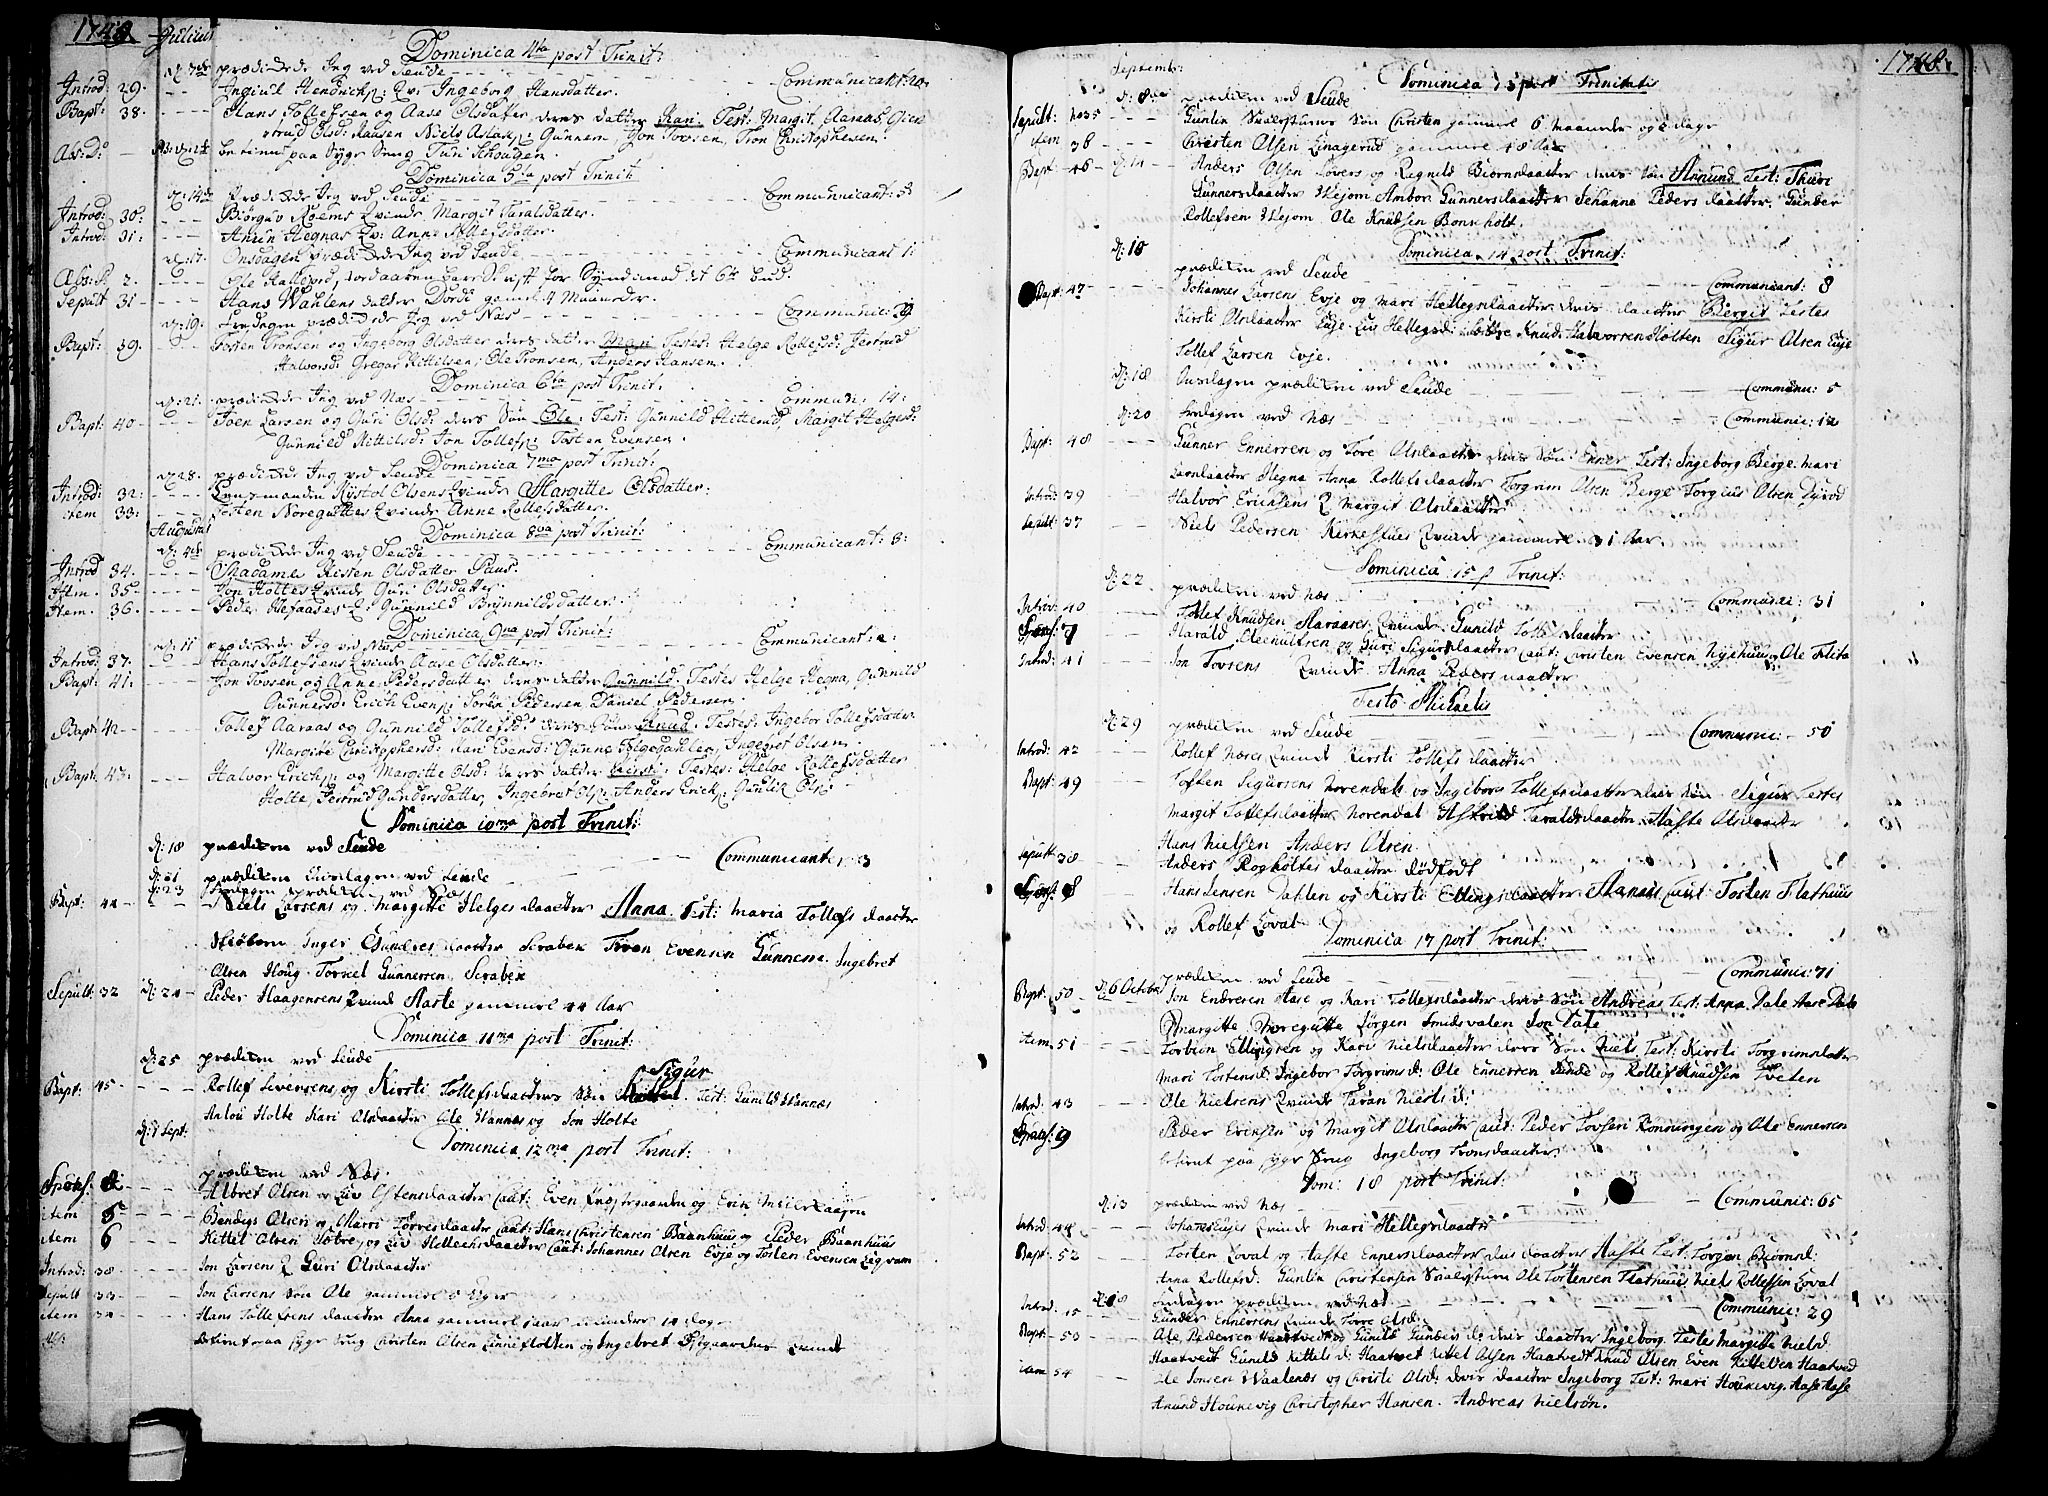 1748 Julius
Dominica 4ta post Trinit:
d: 7de prædikede Jeg ved Seude - - - Communicant: 20
Introd: 29. - - Hendrichs: Qv: Ingeborg Hansdatter.
Bapt: 38. - - Hans Tollefsen og Aase Olsdatter deres datter Kari. Test: Margit Aaraas,
Olsd: Niels Aslaks: Gunner Jon Tovsen, Tron Christophersen
Abs: D: - betient paa Syge Seng Turi Schougen.
Dominica 5ta post Trinit
d: 14de Prædikede Jeg ved Seude - - - Communicant: 5
Introd: 30: - - - Qvinde Margit Taralsdatter.
Introd: 31: - - - Hegnas Qv: Anne Tollefsdatter.
d: 17. Onsdagen prædikede Jeg ved Seude - - - Communicant 1:
Abs: P. 2. Ole for Synd imod det 6te bud.
Sepult 31 - Hans Wahlens datter Dordi gamel 4 Maaneder.
d: 19. Fredagen prædikede Jeg ved Næs - - - Communic: 29
Bapt: 39. - - Tosten Tronsen og Ingeborg Olsdatter deres datter Mari Testes: Helge Rollefsd: Jertrud
Halvorsd: Gregar Kittilsen, Ole Tronsen, Anders Hansen.
Dominica 6ta post Trinit:
d: 21. prædikede Jeg ved Næs - - - Commun: 14:
Bapt: 40 - - - Joen Larsen og Guri Olsd: deres Søn Ole. Test: Gunnild Kitterud, Margit Helgesd:
Gunnild Kittilsd: Jon Tollefs: Tosten Evensen.
Dominica 7ma post Trinit:
d. 28. prædikede Jeg ved Seude
Introd: 32: - - - Lensmanden Kystol Olsens Qvinde Margitte Olsdatter:
item 33: - - - Tosten Noreguttes Qvinde Anne Rollefsdatter.
Augustus
Dominica 8va post Trinit:
d: 4de prædikede Jeg ved Seude - - - Communicant: 8:
Introd 34. - - - Madame Kirsten Olsdatter Puus:
Item. 35. - - - Jon Holtes Qvinde Guri Olsdatter
Item. 36. - - - Peder Q: Gunnild Brynnildsdatter.
Dominica 9na post Trinit:
d. 11 prædikede Jeg ved Næs - - - Communicant: 2:
Introd: 37. - - - Hans Tollefsens Qvinde Aase Olsdatter.
Bapt: 41. - - - Jon Tovsen og Anne Pedersdatter deres datter Gunnild. Testes Helge Hegna, Gunnild
Gunnersd: Erich Evens: Sören Pedersen, Daniel Pedersen
Bapt: 42 - - Tollef Aaraas og Gunnild Tollefsd: deres Søn Knud. Testes: Ingebor Tollefsdatter
Margite Christophersd: Kari Evensd: Gunne Ingebret Olsen
Bapt: 43. - - - Halvor Erichs: og Margitte Olsd: deres datter Kersti. Testes: Helge Rollefsdatter
Holte, Jertrud Gundersdatter, Ingebret Ols: Anders Erichs: Gunlik Ols:
Dominica 10ma post Trinit:
d: 18 prædiken ved Seude - - - Communicant: 3
d: 21 prædiken Onsdagen ved Seude
d: 23 Fredagen prædiken ved Næs
Bapt: 44 - - Niels Larsens og Margitte Helgesdaatter Anna Test: Maria Tollefsdaatter
Inger Gundersdaatter Scrabek Tron Evensen Gunnerss. Ingebret
Olsen Houg Torkel Gunnersen Scrabek
Sepult: 32 d: 24 Peder Haagensens Qvinde Aaste gammel 44 Aar
Dominica 11ma post Trinit:
d: 25 prædiken ved Seude
Bapt: 45 - - - Rollef Siversens og Kirsti Tollefsdaatters Søn Sigur Test: Gunild Wannes
Holte Kari Olsdaatter Ole Wannes og Jon Holte
d: 1 Sept:
Dominica 12ma post Trinit:
prædiken ved Næs.
Spons: 4 - - Albret Olsen og Liv Ostensdaatter Caut: Even og Erik
item 5 - - Bendigs Olsen og Marri Torresdaatter Caut: Hans Christensen Baanhuus og Peder Baanhuus
item 6 Kittel Olsen og Liv Hellechsdaatter Caut: Johannes Olsen Evje og Tosten Evensen
Introd: 38 - - Jon Larsens Q Guri Olsdaatter
Sepult 33 - - Jon Larsens Søn Ole gammel 5 Uger
item 34 - - Hans Tollefsens daatter Anna gammel 1 aar 10 dage
betient paa syge seng Christen Olsen og Ingebret Qvinde

1748.
Septembr:
Dominica 13 post Trinitatis
d. 8de prædiken ved Seude
Sepult: No 35 - - - Gunlik Søn Christen gammel 6 Maaneder og dage
item 36 - - Christen Olsen gammel 48 Aar
Bapt 46 d: 14 - Anders Olsen Lovers og Ragnild Biørnsdaatter deres Søn Amund Test: Thuri
Gunnersdaatter Wejom Ambor Gunnersdaatter Johanne Pedersdaatter, Gunder
Rollefsen Wejom. Ole Knudsen Bonkholt.
Dominica 14 post Trinit:
d: 15 prædiken ved Seude
Bapt 47 - - - Communicant: 8
Johannes Larsens Evje og Mari Hellegsdaatter deres daatter Bergit Testes
Kirsti Olsdaatter Evje Liv Hellegsd: Knud Halvorsen Holten Sigur Olsen Evje
Tollef Larsen Evje.
d: 18 Onsdagen prædiken ved Seude - - - Commun: 5
d: 20 Fredagen ved Næs - - - Communic: 12
Bapt: 48 - - - Gunner Ennersen og Tore Olsdaatter deres Søn Enner Test: Ingeborg Berge. Mari
Hegna Anna Rollefsdaatter Torgrim Olsen Berge Torgius Olsen
Introd: 39 Halvor Erichsens Q Margit Olsdaatter
Sepult: 37 - - Niels Pedersen Kirkestues Qvinde gammel 31 Aar.
Dominica 15 p Trinit:
d: 22 prædiken ved Næs - - - Communic: 31
Introd: 40 Tollef Knudsen Aaraases Qvinde Gunild Tollefsdaatter
Spons: 7 Harald Steenulfsen og Guri Sigursdaatter Caut: Christen Evensen Nyhuus og Ole
Introd: 41 Jon Tovsens Qvinde Anna Pedersdaatter
Festo Michaelis
d: 29 prædiken ved Seude - - - Communic: 50
Introd: 42 - - Rollef Næses Qvinde Kirsti Tollefsdaatter
Bapt: 49 - - Tosten Sigursens Norendals og Ingeborg Tollefsdaatter deres Søn Sigur Testes
Margit Tollefsdaatter Norendal Astrid Taraldsdaatter Aaste Olsdaatter
Hans Nielsen Anders Olsen.
Sepult: 38 - - Anders Rogholtes daatter dødfødt
Spons: 8 Hans Jensen Dahlen og Kirsti Ellingsdaatter Caut: Tosten Flathuus
og Rollef Loval
Dominica 17 post Trinit:
d: 6 Octobr prædiken ved Seude - - - Communic: 71
Bapt: 50 Jon Endresen Aase og Kari Tollefsdaatter deres Søn Andreas Test: Anna Dale Aase Dale
Margitte Noregutte Jørgen Smidsvalen Jon Dale
item 51 Torbiøn Ellingsen og Kari Nielsdaatter deres Søn Niels Test: Kirsti Torgrimsdatter
Mari Tostensd: Ingebor Torgrimsd: Ole Ennersen Sunde og Rollef Knudsen Tveten
Introd. 43 - - Ole Nielsens Qvinde Taran Nielsd:
Spons: 9 Peder Eriksen og Margit Olsdaatter Caut: Peder Tovsen Ronningen og Ole Ennersen
betient paa syge Seng Ingeborg Tronsdaatter
Dom: 18 post Trinit:
d. 13 prædiken ved Næs - - - Communic: 65
Introd: 44 - Johannes Evjes Qvinde Mari Hellegsdaatter
Bapt: 52 - - - Tosten Loval og Aaste Ennersdaatter deres daatter Aaste Test: Torgon Biørnsd:
Anna Rollefsd: Gunlik Christensen Ole Tostensen Flathuus Niels Rollefsen Loval
d: 18 Fredagen prædiken ved Næs - - - Communic: 29
Introd: 45 Gunder Ennersens Qvinde Torre Olsd:
Bapt: 53 - - Ole Pedersen Haatvedt og Gunild Gundersd: deres daatter Ingeborg Testes Margitte Nielsd:
Haatvedt Gunild Kittelsd: Haatvet Kittel Olsen Haatvedt Knud Olsen Even Kittelsen Haatved
item 54 - - Ole Jonsen Waalenæs og Christi Olsd: deres daatter Ingeborg Test: Mari Houkevig, Aase Aase
Amund Houkevig Christopher Hansen. Andreas Nielsøn.